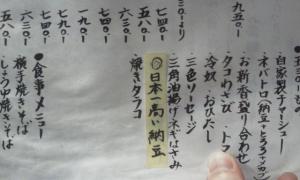 自家製チャーシュー
オバトロ(納豆・とろろ・メカブ
お新香盛り合わせ
タコわさび・ト
冷奴・おひたし
三色ソーセージ
三角油揚げネギはさみ
◎日本一高い納豆
・焼きタラコ
九五〇-
三八〇-より
七四〇-
五八〇-
六三〇-
一九〇-
七四〇-
六三〇-
五八〇-
●食事メニュー
横手焼きそば
・しょうゆ焼きそば